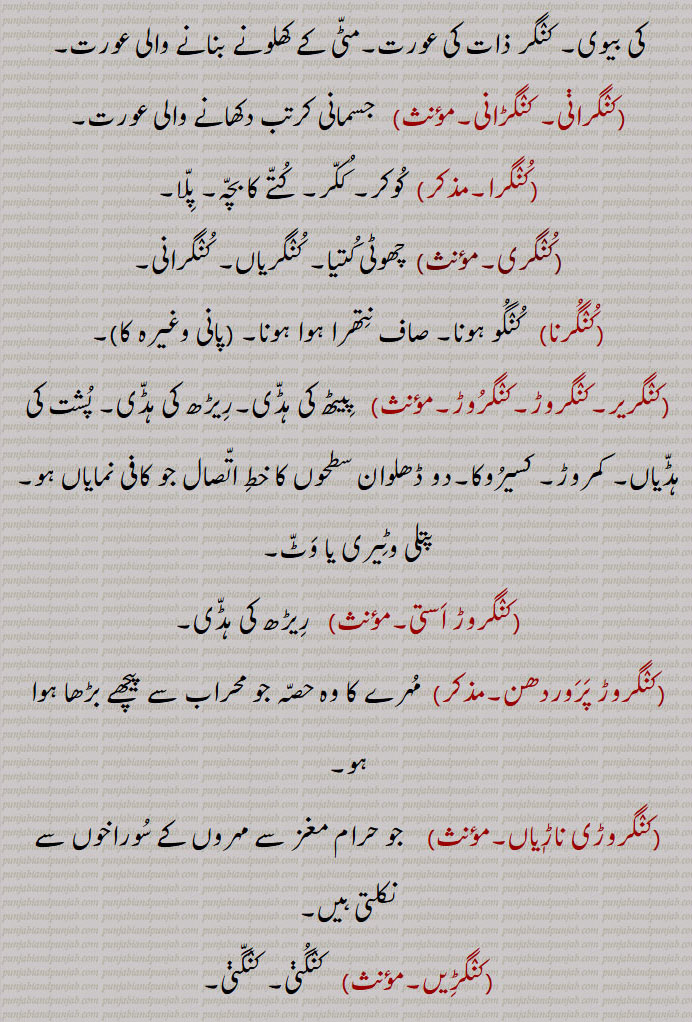 کی بیوی۔ کنگر ذات کی عورت۔ مٹّی کے کھلونے بنانے والی عورت۔
(کنگرانی۔ کنگڑانی۔ مؤنث) جسمانی کرتب دکھانے والی عورت۔
(کُنگرا۔ مذکر) کُوکر۔ کُکّر۔ کُتّے کا بچّہ۔ پِلّا۔
(کُنگری۔ مؤنث) چھوٹی کُتیا۔ کُنگریاں۔ کُنگرانی۔
(کُنگُرنا) کُنگُو ہونا۔ صاف نِتھرا ہوا ہونا۔ (پانی وغیرہ کا)۔
(کنگریر۔ کنگروڑ۔ کنگرُوڑ۔ مؤنث) پِیٹھ کی ہڈّی۔ رِیڑھ کی ہڈّی۔ پُشت کی
ہڈّیاں۔ کمروڑ۔ کسیرُوکا۔ دو ڈھلوان سطحوں کا خطِ اتّصال جو کافی نمایاں ہو۔
پتلی وٹِیری یا وَٹّ۔
(کنگروڑ اَستی۔ مؤنث) رِیڑھ کی ہڈّی۔
(کنگروڑ پَرَوردھن۔ مذکر) مُہرے کا وہ حصّہ جو محراب سے پیچھے بڑھا ہوا
ہو۔
(کنگروڑی ناڑیاں۔ مؤنث) جو حرام مغز سے مہروں کے سُوراخوں سے
نکلتی ہیں۔
(کنگڑِیں۔ مؤنث) کنگُنی۔ کنگّنی۔